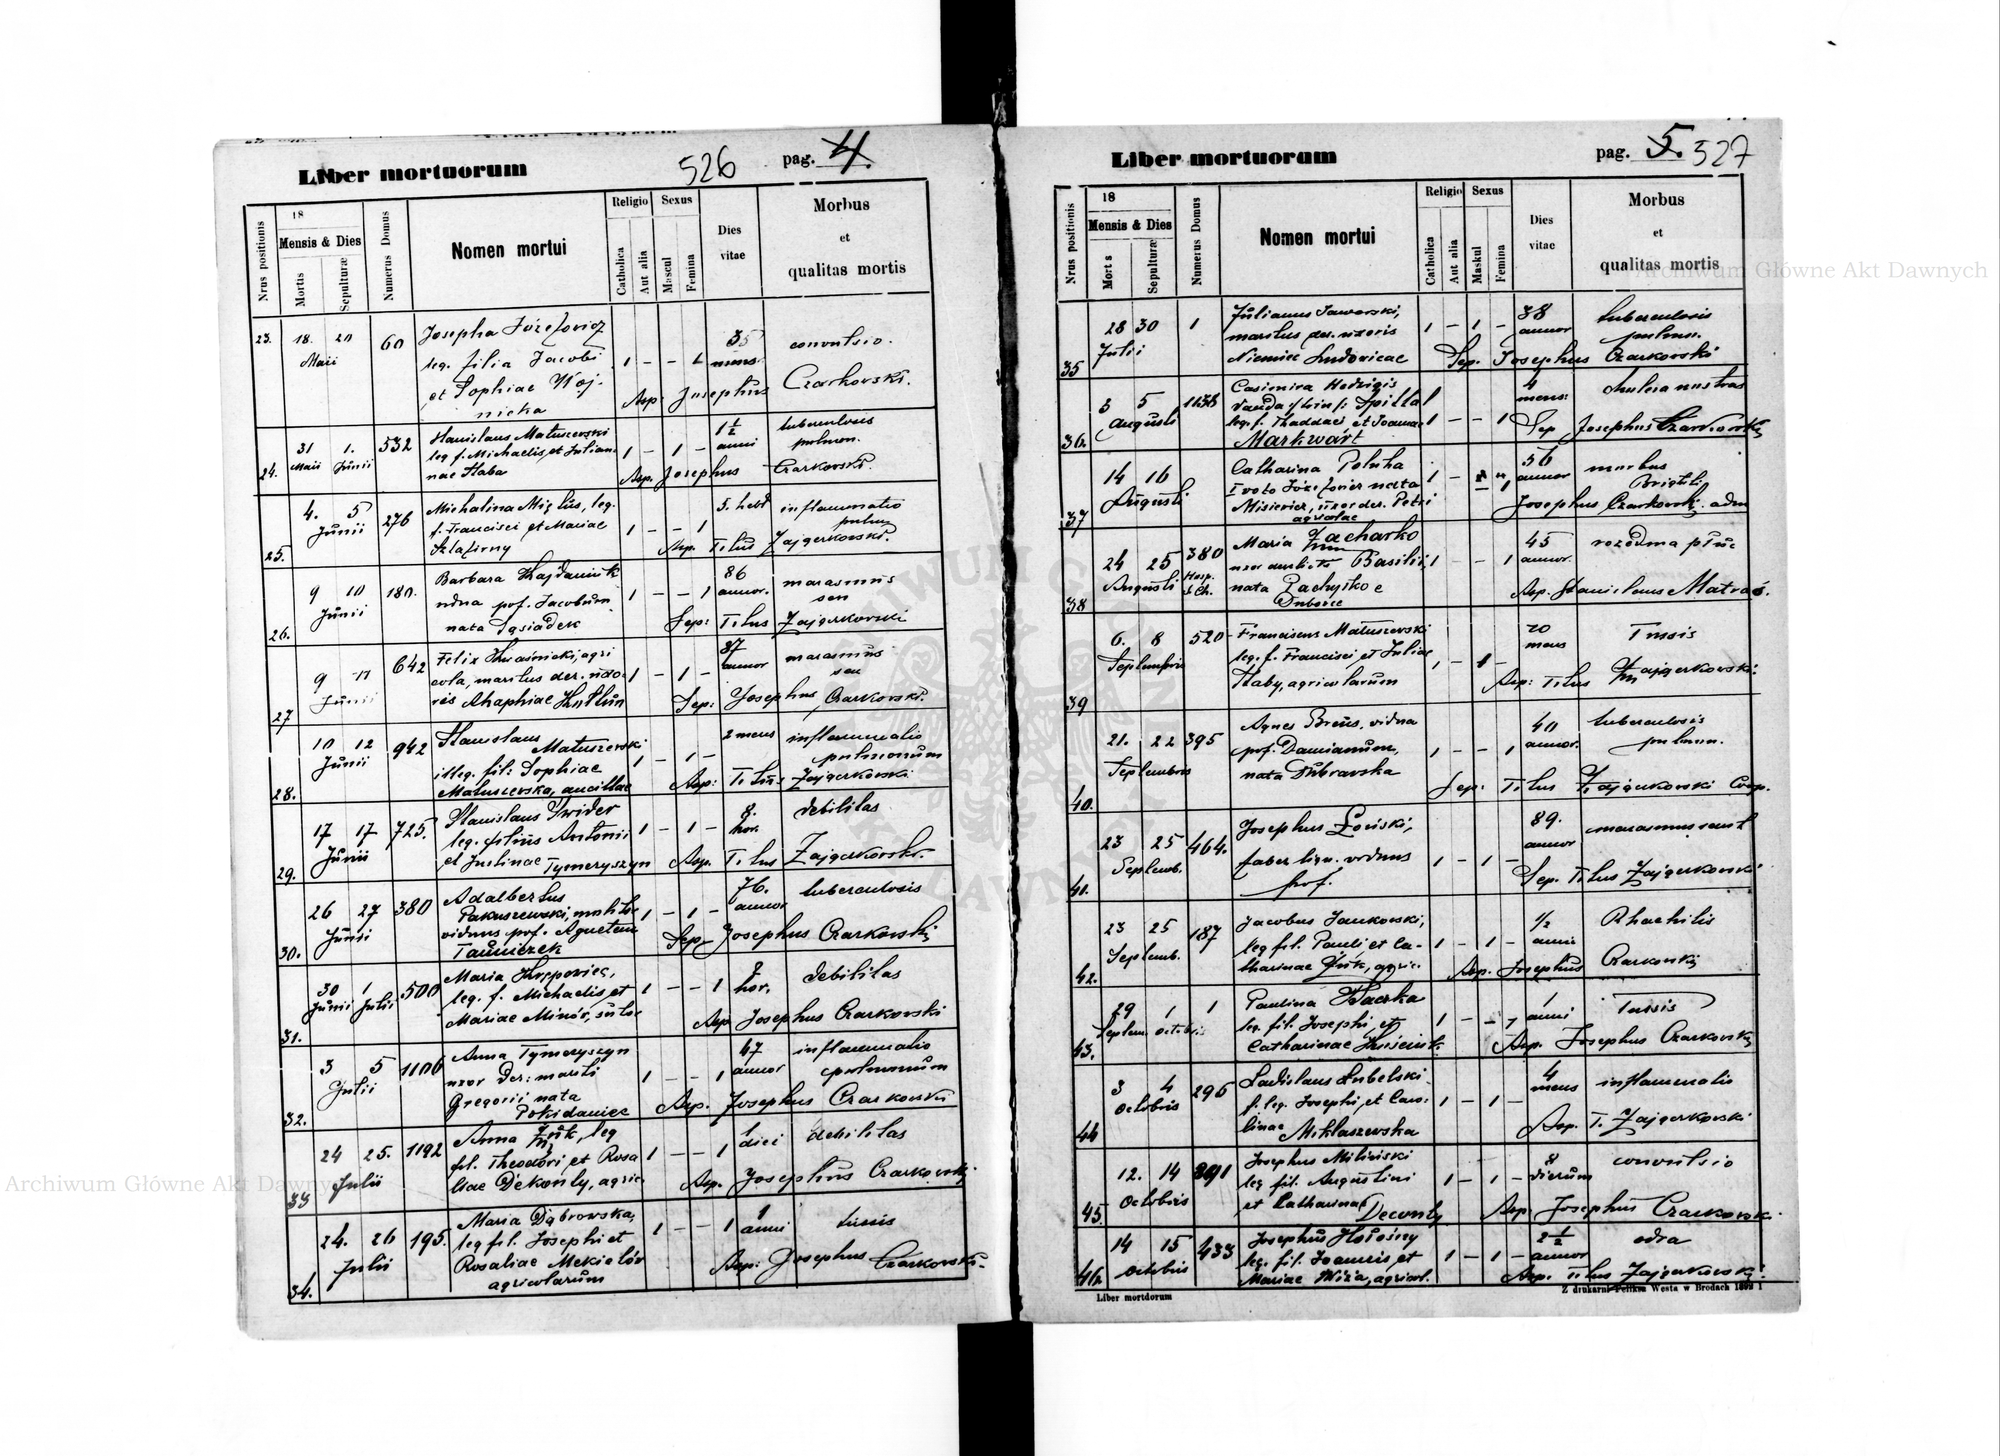 Liber mortuorum 526 pag. 4.
Nrus positionis
18
Mensis & Dies
Mortis
Sepulturæ
Numerus Domus
Nomen mortui
Religio
Catholica
Aut alia
Sexus
Mascul
Femina
Dies
vitae
Morbus
et
qualitas mortis
23. 18. 20 Maii 60
Josepha Józefowicz
leg. filia Jacobi
et Sophiae Woj-
nicka
1 - - 1
35 mens.
convulsio.
Asp: Josephus Czarkowski.
24. 31 Maii 1. Junii 532
Stanislaus Matuszewski
leg f. Michaelis et Julian-
nae Staba
1 - 1 -
1 1/2 anni
tuberculosis
pulmon.
Asp. Josephus Czarkowski.
25. 4. 5 Junii 276
Michalina leg.
f. Francisci et Mariae
1 - - 1
5. hebd
inflammatio
pulm
Asp. Titus Zajgerkowski.
26. 9 10 Junii 180.
Barbara Hajdaniuk
vidua pof. Jacobum
nata Sąsiadek
1 - - 1
86 annor.
marasmus
sen
Sep: Titus Zajgerkowski
27 9 11 Junii 642
Felix Kwaśnicki, agri
cola, maritus der. uxo-
ris Ahaphiae
1 - 1 -
87 annor
marasmus
sen
Sep: Josephus Czarkowski.
28. 10 12 Junii 942
Stanislaus
Matuszewski
illeg. fil: Sophiae
Matuszewska, ancillae
1 - 1 -
2 mens
inflammatio
pulmonum
Asp: Titus Zajgerkowski
29. 17 17 Junii 725.
Stanislaus Swider
leg. filius Antonii
et Justinae Tymeryszyn
1 - 1 -
8. hor.
debilitas
Asp. Titus Zajgerkowski.
30. 26 27 Junii 380
Adalbertus
Pakuszewski,
viduus pof. Agnetem
1 - 1 -
76. annor
tuberculosis
Sep Josephus Czarkowski
31. 30 Junii 1 Julii 500
Maria
leg. f. Michaelis, et
Mariae
1 - - 1
8 hor.
debilitas
Asp Josephus Czarkowski
32. 3 5 Julii 1106
Anna Tymeryszyn
uxor der: mariti
Gregorii nata
Pokidaniec
1 - - 1
47 annor
inflammatio
pulmonum
Asp. Josephus Czarkowski
33 24 25. Julii 1192
Anna Żuk, leg
fil. Theodori et Rosa
liae Dekonty, agric.
1 - - 1
1 diei
debilitas
Asp. Josephus Czarkowski
34. 24. 26 Julii 195.
Maria Dąbrowska,
leg fil. Josephi et
Rosaliae
agricolarum
1 - - 1
1 anni
tussis
Asp: Josephus Czarkowski.
Liber mortuorum pag. 5. 527
Nrus positionis
18
Mensis & Dies
Mort s
Sepulturæ
Numerus Domus
Nomen mortui
Religio
Catholica
Aut alia
Sexus
Maskul
Femina
Dies
vitae
Morbus
et
qualitas mortis
35 28 30 Julii 1
Julianus Jaworski,
maritus der. uxoris
Niemiec Ludovicae
1 - 1 -
38 annor
tuberculosis
pulmon.
Sep. Josephus Czarkowski
36. 3 5 Augusti 1138
Casimira Hedvigis
Vanda Spittal
leg. f. Thaddaei et Joannae
Markwart
1 - - 1
4 mens:
cholera nostras
Sep Josephus Czarkowski
37 14 16 Augusti
Catharina Poluha
I voto Józefowicz nata
Misiewicz, uxor der. Petri
agricolae
1 - 1
56 annor
morbus
Brigthi
Josephus Czarkowski adm
38 24 25 Augusti 380
Hosp.
S Ch.
Maria Zacharko
uxor Basilii,
nata
1 - - 1
45 annor.
rozedma płuc
Asp. Stanislaus Matras.
39 6. 8 Septembris 520
Franciscus Matuszewski
leg. f. Francisci et Juliae
Staby, agricolarum
1 - 1 -
20 mens
Tussis
Asp: Titus Zajgerkowski.
40. 21. 22 Septembris 395
Agnes Breus, vidua
pof. Damianum,
nata Dubrawska
1 - - 1
40 annor.
tuberculosis
pulmon.
Sep: Titus Zajgerkowski Coop.
41. 23 25 Septemb. 464.
Josephus Łoński,
faber lign. viduus
pof.
1 - 1 -
89. annor
marasmus senil
Sep. Titus Zajgerkowski
42. 23 25 Septemb. 187
Jacobus Jankowski,
leg fil. Pauli et Ca-
tharinae Żuk, agric.
1 - 1 -
1/2 anni
Rhachitis
Asp. Josephus Czarkowski
43. 29 Septem. 1 Octobris 1
Paulina Kaczka
leg. fil. Josephi, et
Catharinae
1 - - 1
1 anni
Tussis
Asp. Josephus Czarkowski
44 3 4 Octobris 296
Ladislaus Lubelski
f. leg. Josephi, et Caro-
linae Miklaszewska
1 - 1 -
4 mens
inflammatio
Asp. T. Zajgerkowski
45. 12. 14 Octobris 391
Josephus Miliński
leg fil. Augustini
et Catharinae Deconty
1 - 1 -
8 dierum
convulsio
Asp. Josephus Czarkowski
46. 14 15 Octobris 433
Josephus Hołośny
leg. fil. Joannis, et
Mariae agricol.
1 - 1 -
2 1/2 annor
odra
Asp. Titus Zajgerkowski.
Liber mortdorum
Z drukarni Feliksa Westa w Brodach
Archiwum Główne Akt Dawnych
Archiwum Główne Akt Dawnych